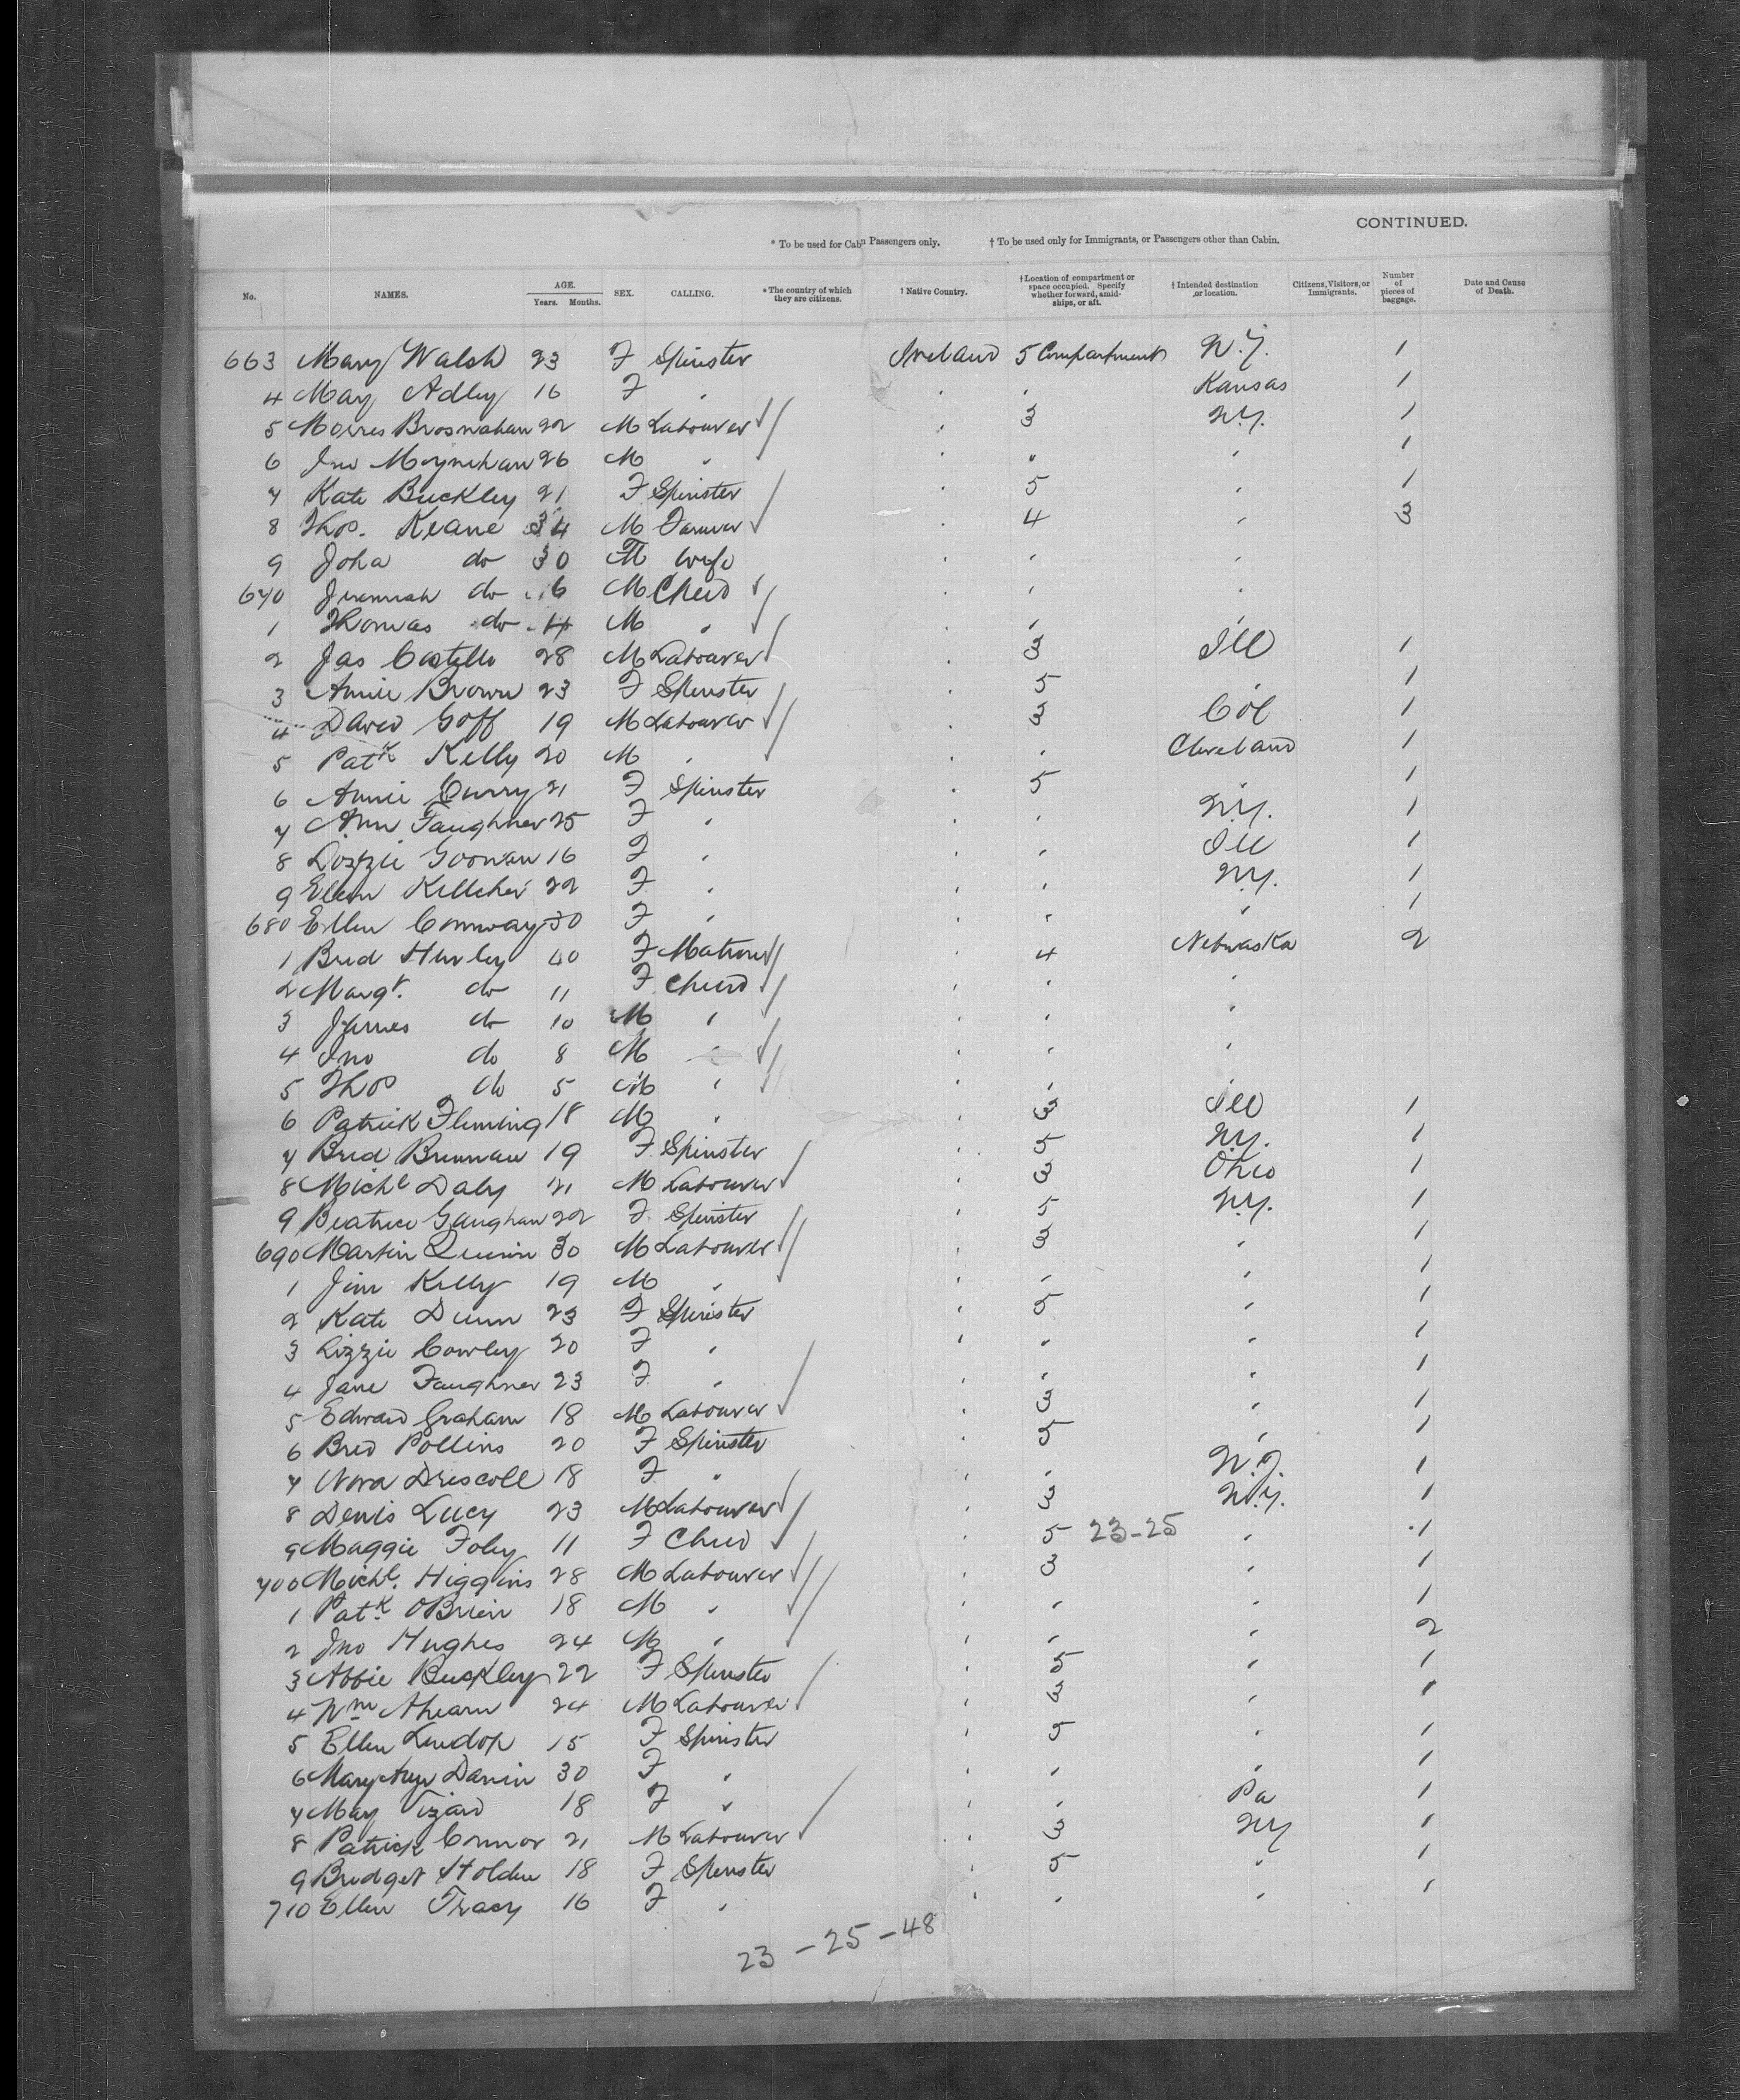 CONTINUED.
* To be used for Cabin Passengers only. † To be used only for Immigrants, or Passengers other than Cabin.
No. NAMES. AGE. Years. Months. SEX. CALLING. * The country of which they are citizens. † Native Country. † Location of compartment or space occupied. Specify whether forward, amidships, or aft. † Intended destination or location. Citizens, Visitors, or Immigrants. Number of pieces of baggage. Date and Cause of Death.
663 Mary Walsh 23 F Spinster Ireland 5 Compartment N.Y. 1
4 May Adley 16 F " " " Kansas 1
5 Morres Brosnahan 22 M Labourer " 3 N.Y. 1
6 Jno Moynihan 26 M " " " " 1
7 Kate Buckley 21 F Spinster " 5 " 1
8 Thos. Keane 34 M Farmer " 4 " 3
9 Joha do 30 F Wife " " "
670 Jeremiah do 6 M Child " " "
1 Thomas do 4 M " " " "
2 Jas Costello 28 M Labourer " 3 Ill 1
3 Annie Brown 23 F Spinster " 5 " 1
4 David Goff 19 M Labourer " 3 Col 1
5 Patk Kelly 20 M " " " Cleveland 1
6 Annie Curry 21 F Spinster " 5 " 1
7 Ann Faughner 25 F " " " N.Y. 1
8 Lizzie Goonan 16 F " " " Ill 1
9 Ellen Kelleher 22 F " " " N.Y. 1
680 Ellen Conway 30 F " " " " 1
1 Brid Hurley 40 F Matron " 4 Nebraska 2
2 Margt. do 11 F Child " " "
3 James do 10 M " " " "
4 Jno do 8 M " " " "
5 Thos do 5 M " " " "
6 Patrick Fleming 18 M " " 3 Ill 1
7 Brid Brennan 19 F Spinster " 5 N.Y. 1
8 Michl Daly 21 M Labourer " 3 Ohio 1
9 Beatrice Gaughan 22 F Spinster " 5 N.Y. 1
690 Martin Quinn 30 M Labourer " 3 " 1
1 Jim Kelly 19 M " " " " 1
2 Kate Dunn 23 F Spinster " 5 " 1
3 Lizzie Cowley 20 F " " " " 1
4 Jane Faughner 23 F " " " " 1
5 Edward Graham 18 M Labourer " 3 " 1
6 Brid Pollins 20 F Spinster " 5 " 1
7 Nora Driscoll 18 F " " " N.J. 1
8 Denis Lucy 23 M Labourer " 3 N.Y. 1
9 Maggie Foley 11 F Child " 5 23-25 " 1
700 Michl. Higgins 28 M Labourer " 3 " 1
1 Patk OBrien 18 M " " " " 1
2 Jno Hughes 24 M " " " " 2
3 Abbie Buckley 22 F Spinster " 5 " 1
4 Wm Ahearn 24 M Labourer " 3 " 1
5 Ellen Lindop 15 F Spinster " 5 " 1
6 Mary Ann 30 F " " " " 1
7 May Vizard 18 F " " " Pa 1
8 Patrick Connor 21 M Labourer " 3 NY 1
9 Bridget Holden 18 F Spinster " 5 " 1
710 Ellen Tracy 16 F " " " " 1
23-25-48